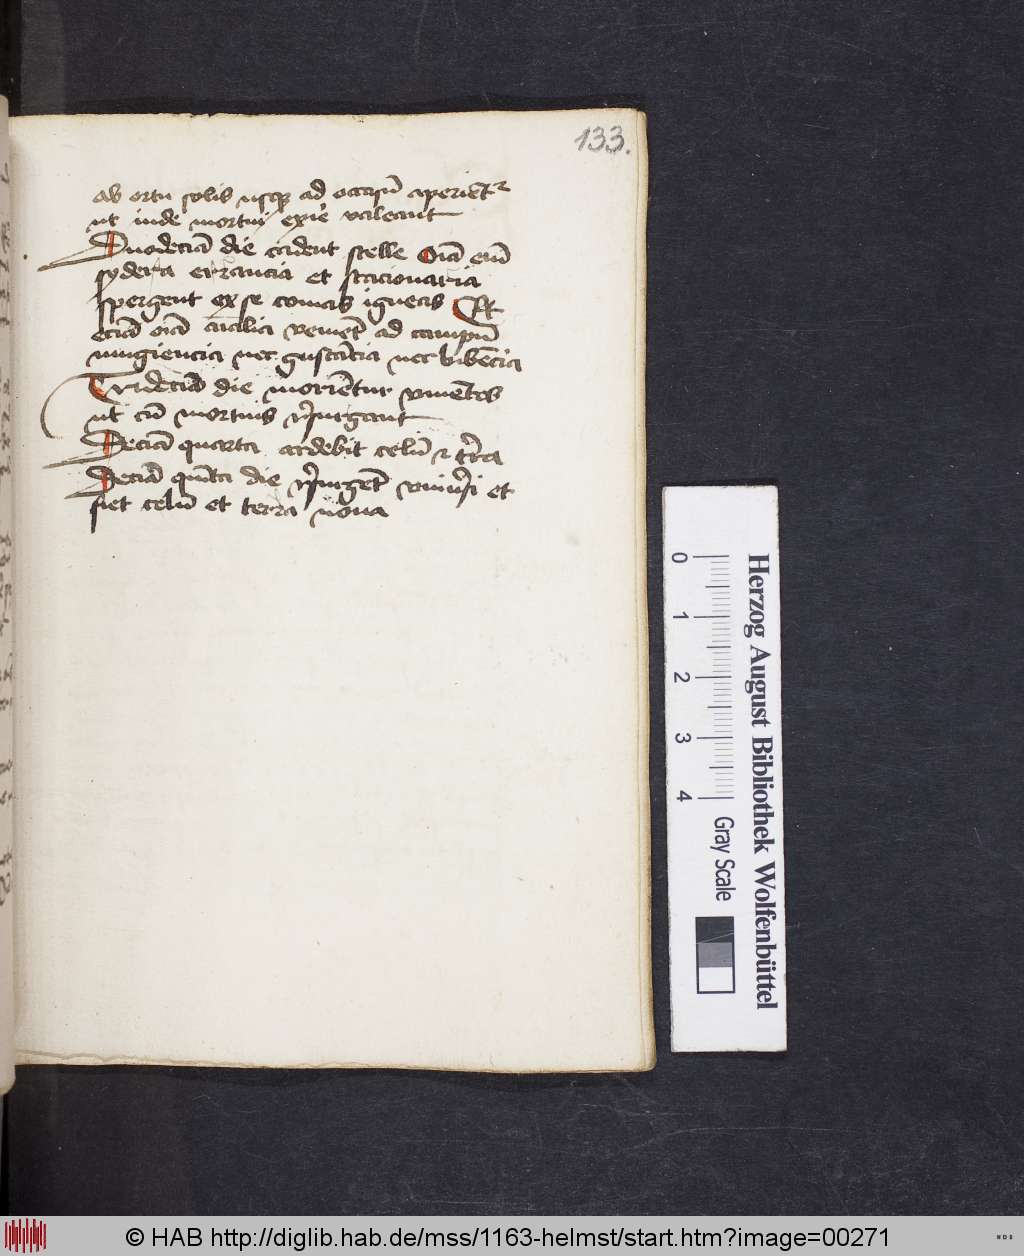 133.
ab ortu solis usqꝫ ad occasū aperiēt᷑
ut inde mortui exiē valeant
Duodeciā die cadent stelle Oīa em̄
sydera errancia et stacionaria
spergent ex se comas igneas Et
eciā oīa aīalia veniēt ad campū
mugiencia nec gustācia nec bibēcia
Trideciā die moriētur viuētes
ut cū mortuis rꝰsurgant
Deciā quarta ardebit celū ⁊ t̄ra
Deciā quīta die rꝰsurgēt vniūsi et
fiet celū et terra noua
Herzog August Bibliothek Wolfenbüttel
0 1 2 3 4 Gray Scale
© HAB http://diglib.hab.de/mss/1163-helmst/start.htm?image=00271